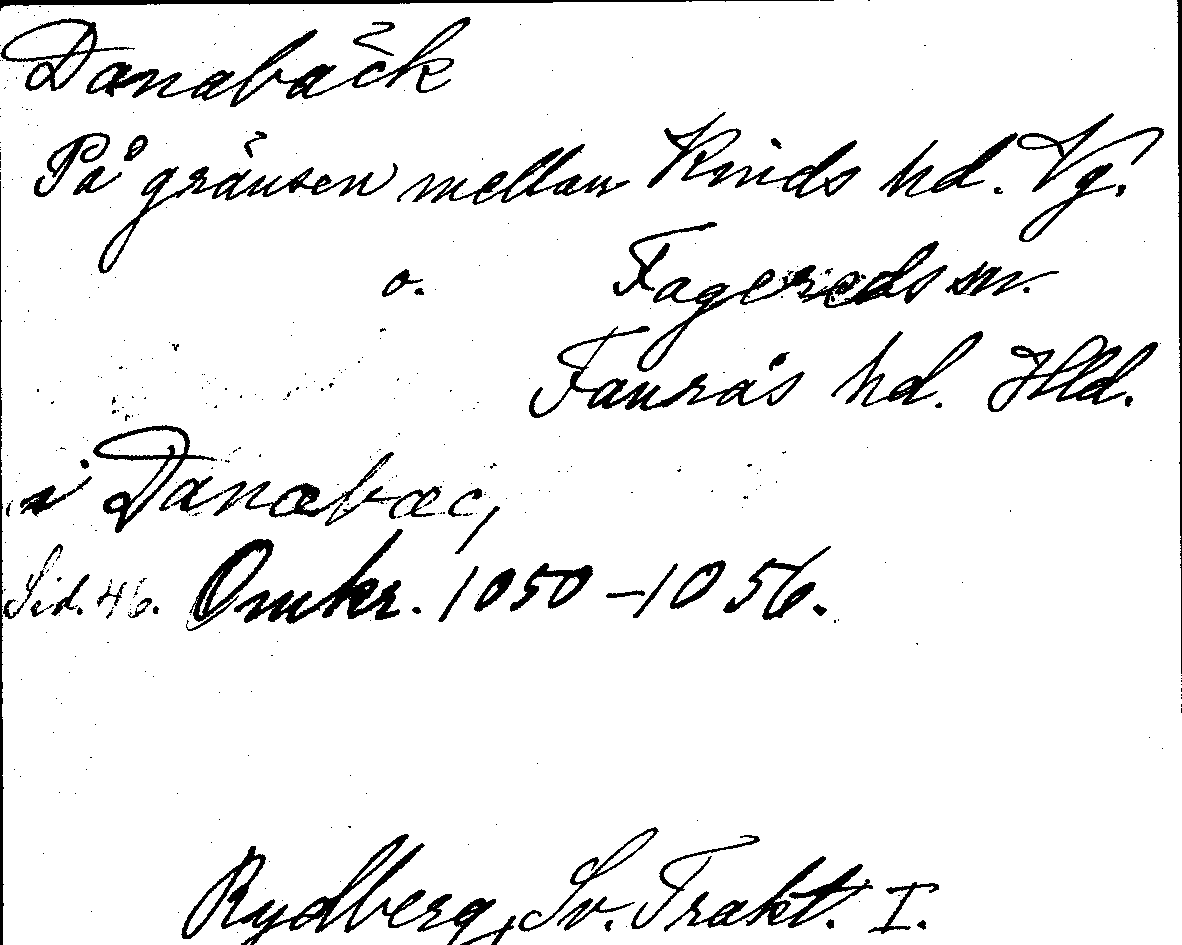 Danabäck
På gränsen mellan Kinds hd. Vg.
o. Fagereds sn.
Faurås hd. Hld.
i Danæbæc,
Sid. 46. Omkr. 1050–1056.
Rydberg, Sv. Trakt. I.